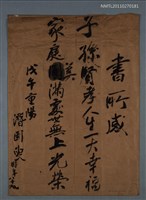 NAPL20110270581
書所感
子孫賢孝人生一大幸福
家庭美滿實世無上光榮
戊午重陽